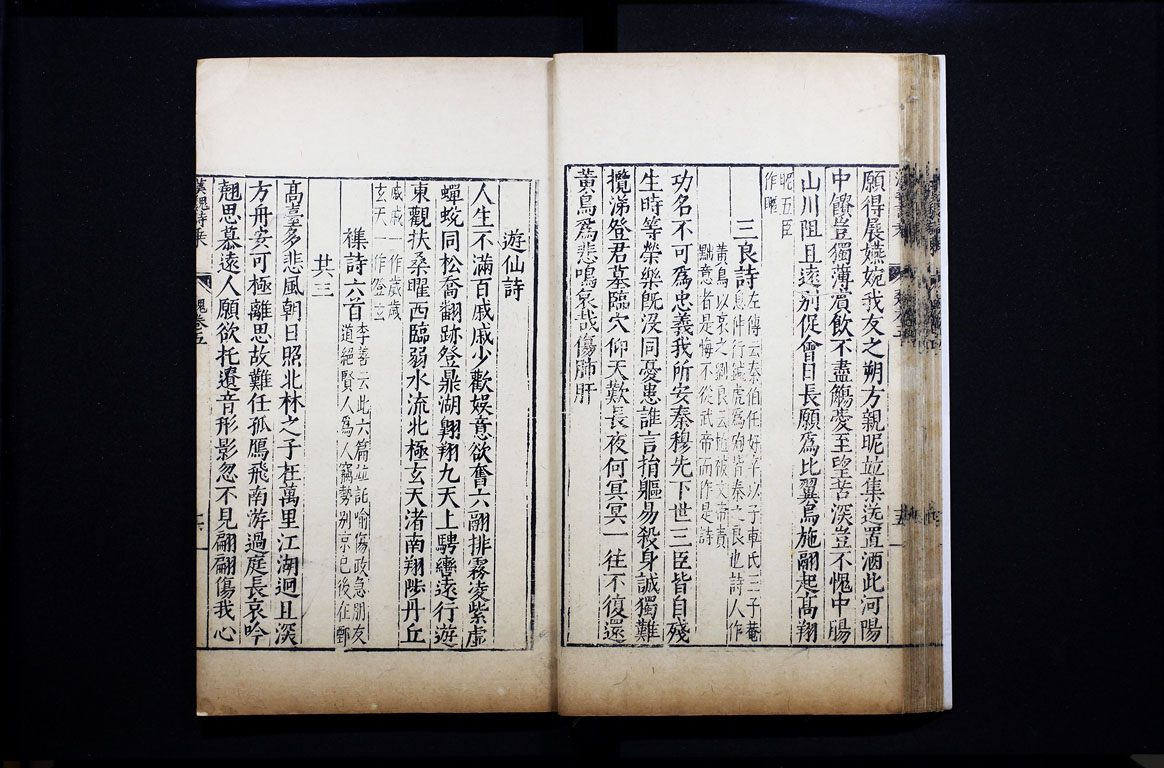 願得展嬿婉我友之朔方親昵並集送置酒此河陽
中饋豈獨薄賓飲不盡觴愛至望苦深豈不愧中腸
山川阻且遠別促會日長願為比翼鳥施翮起高翔
昵五臣
作暱
三良詩
左傳云秦伯任好卒以子車氏三子奄
息仲行鍼虎為殉皆秦之良也詩人作
黃鳥以哀之劉良云植被文帝責
黜意者是悔不從武帝而作是詩
功名不可為忠義我所安秦穆先下世三臣皆自殘
生時等榮樂既沒同憂患誰言捐軀易殺身誠獨難
攬涕登君墓臨穴仰天歎長夜何冥冥一往不復還
黃鳥為悲鳴哀哉傷肺肝
遊仙詩
人生不滿百戚戚少歡娛意欲奮六翮排霧凌紫虛
蟬蛻同松喬翻跡登鼎湖翱翔九天上騁轡遠行遊
東觀扶桑曜西臨弱水流北極玄天渚南翔陟丹丘
戚戚一作歲歲
玄天一作登玄
襍詩六首
李善云此六篇並託喻傷政急朋友
道絕賢人為人竊勢別京已後在鄄
其三
高臺多悲風朝日照北林之子在萬里江湖迥且深
方舟安可極離思故難任孤鴈飛南游過庭長哀吟
翹思慕遠人願欲托遺音形影忽不見翩翩傷我心
漢魏詩乘
魏卷五